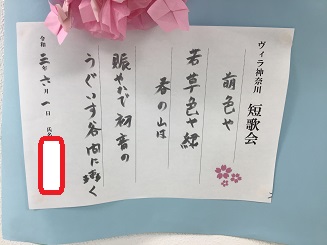 ヴィラ神奈川 短歌会
萌色や
若草色や緑
春の山は
賑やかで初音の
うぐいす谷内に響く
令和三年六月一日 氏名